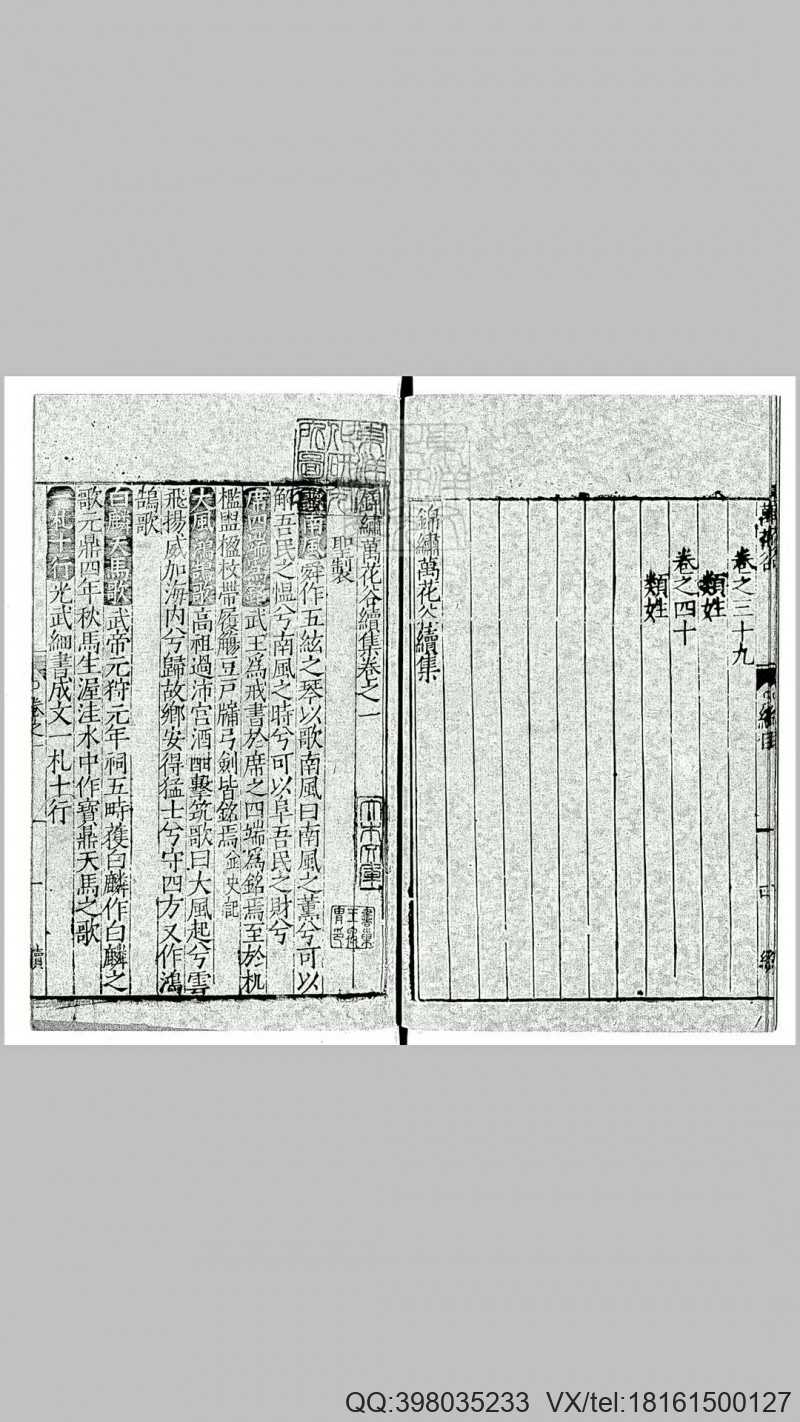 卷之三十九
類姓
卷之四十
類姓
錦繡萬花谷續集
錦繡萬花谷續集卷之一
聖製
歌南風舜作五絃之琴以歌南風曰南風之薰兮可以
解吾民之愠兮南風之時兮可以阜吾民之財兮
席四端爲銘武王爲戒書於席之四端爲銘焉至於机
檻盥楹杖帶履觴豆戸牖弓劍皆銘焉
大風鴻鵠歌高祖過沛宫酒酣擊筑歌曰大風起兮雲
飛揚威加海内兮歸故鄉安得猛士兮守四方又作鴻
鵠歌
白麟天馬歌武帝元狩元年祠五畤獲白麟作白麟之
歌元鼎四年秋馬生渥洼水中作寶鼎天馬之歌
一札十行光武細書成文一札十行
QQ:398035233 VX/tel:18161500127